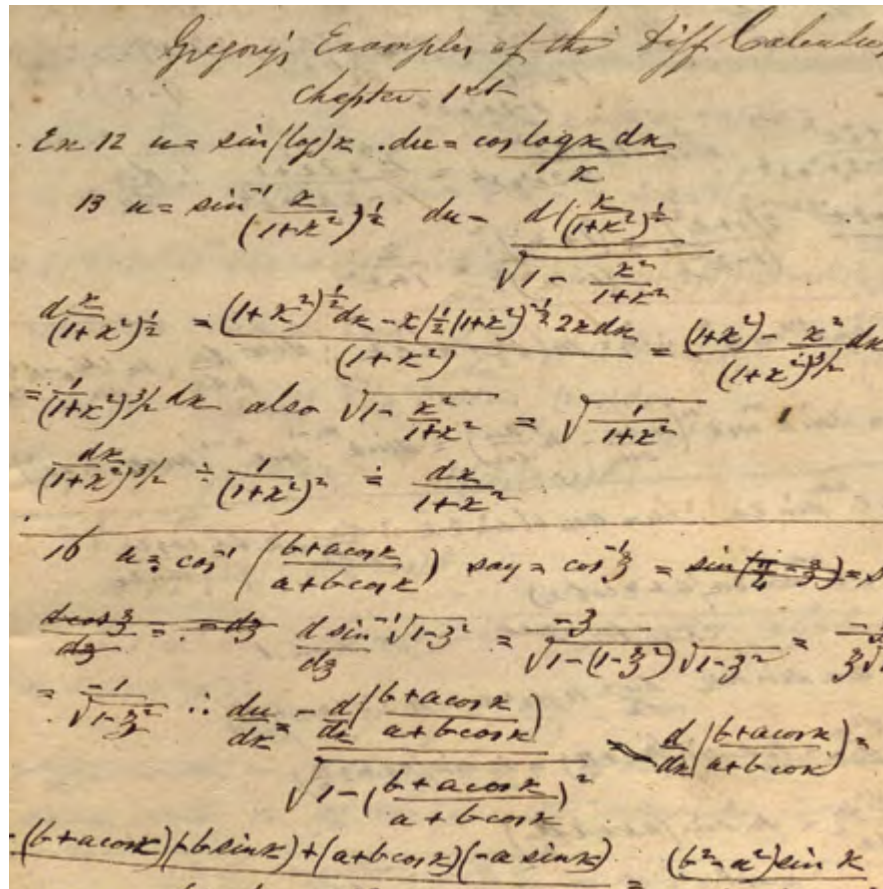 Gregory's Examples of the Diff Calculus
Chapter 1st
Ex 12 u = sin(log)x . du = cos log x dx / x
13 u = sin⁻¹ x/(1+x²)^½ du = d(x/(1+x²)^½) / √(1 - x²/(1+x²))
d x/(1+x²)^½ = ((1+x²)^½ dx - x(½(1+x²)^-½ 2x dx) / (1+x²) = ((1+x²) - x²)/(1+x²)^3/2 dx
= 1/(1+x²)^3/2 dx also √(1 - x²/(1+x²)) = √(1/(1+x²))
dx/(1+x²)^3/2 ÷ 1/(1+x²)² = dx/(1+x²)
16 u = cos⁻¹ ((b+a cos x)/(a+b cos x)) say = cos⁻¹z = sin(π/2 - z) = s
d cos z/dz = . - dz d sin⁻¹√(1-z²)/dz = -z/(√(1-(1-z²)) √(1-z²)) = -z/(z√1
= -1/√(1-z²) ∴ du/dx = - d/dx((b+a cos x)/(a+b cos x)) / √(1-((b+a cos x)/(a+b cos x))²) d/dx((b+a cos x)/(a+b cos x)) =
-(b+a cos x)(-b sin x)+(a+b cos x)(-a sin x) = (b²-a²) sin x